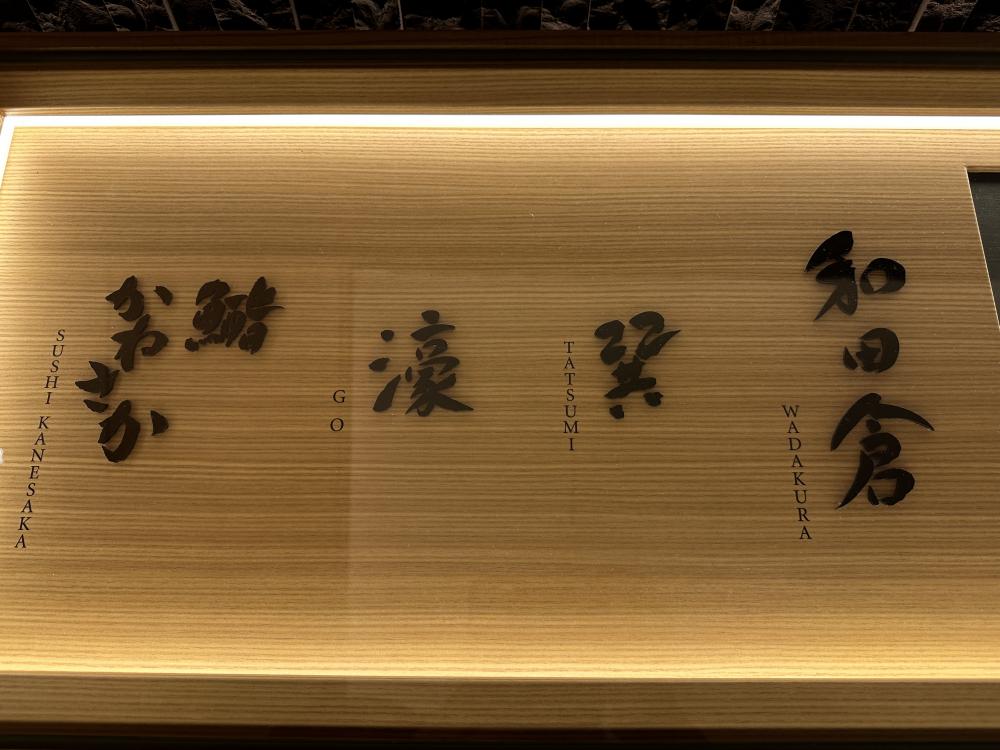 和田倉
WADAKURA
巽
TATSUMI
濠
GO
鮨
かねさか
SUSHI KANESAKA